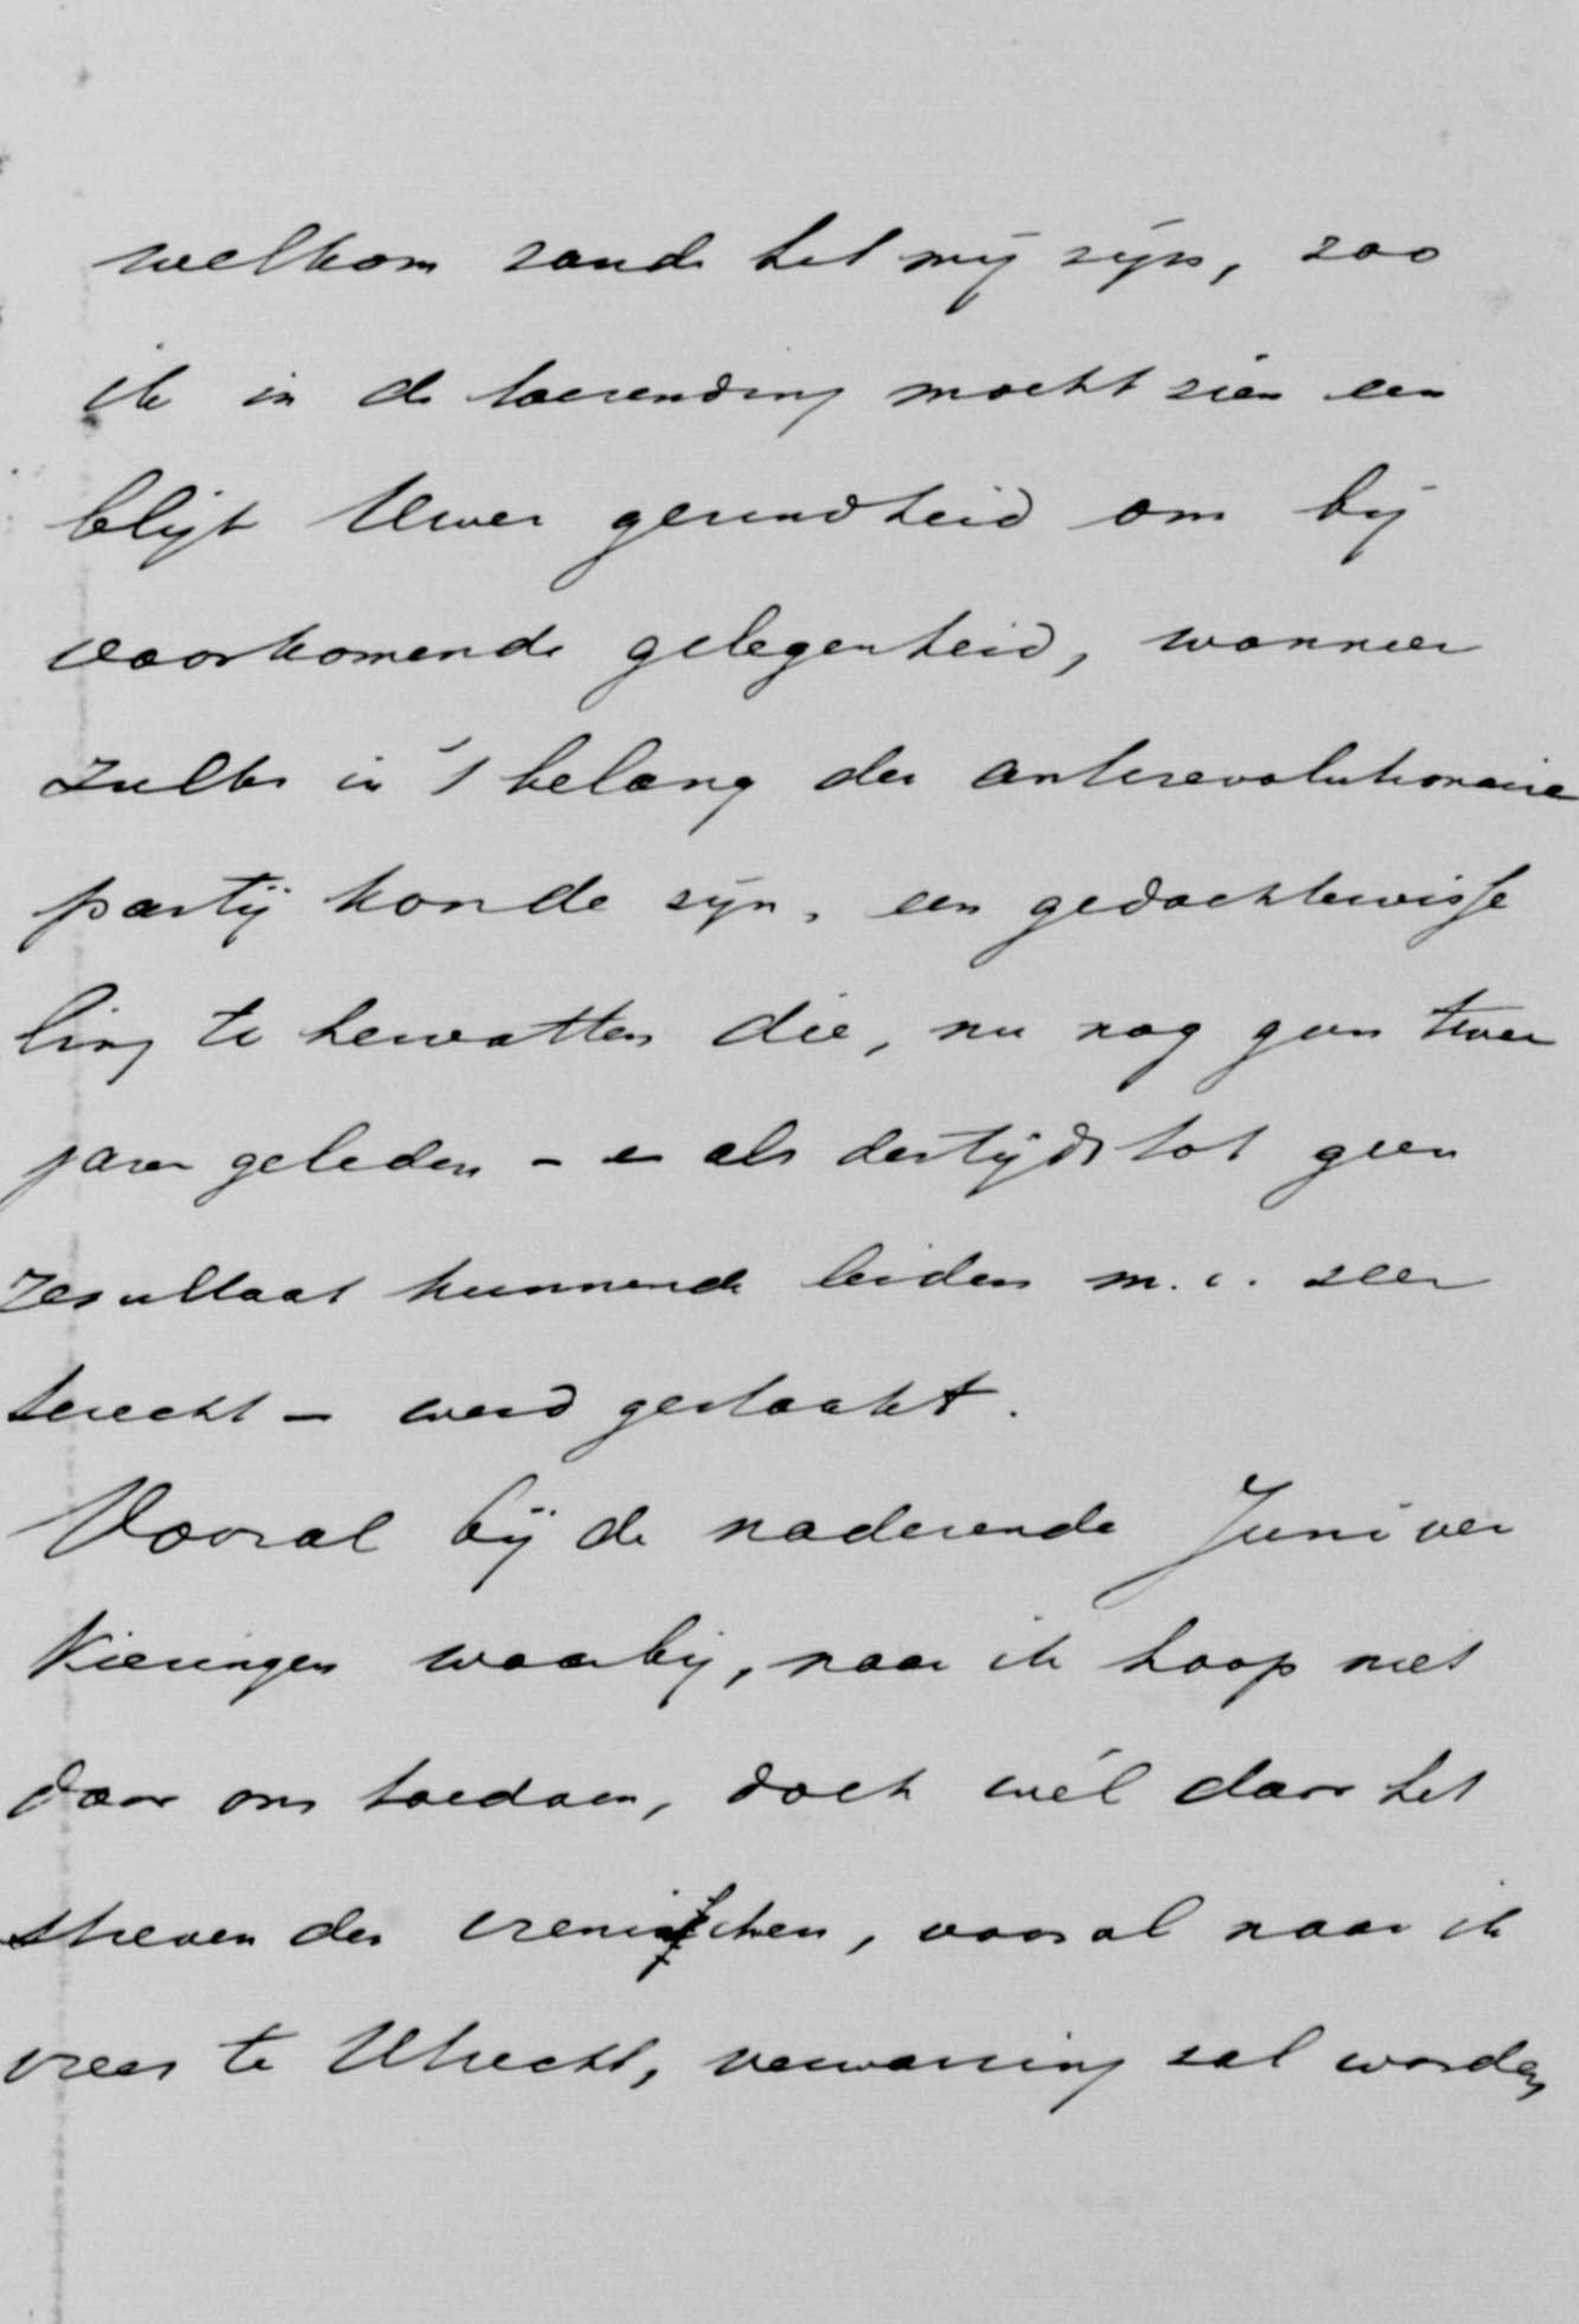 welkom zoude het mij zijn, zoo
ik in de toezending mocht zien een
blijk Uwer gezindheid om bij
voorkomende gelegenheid, wanneer
zulks in 't belang der antirevolutionaire
partij konde zijn, een gedachtewisse
ling te hervatten die, nu nog geen twee
jaren geleden - en als destijds tot geen
resultaat kunnende leiden m.i. zeer
terecht - werd gestaakt.
Vooral bij de naderende Juni ver
kiezingen waarbij, naar ik hoop niet
door ons toedoen, doch wél door het
streven der irenischen, vooral naar ik
vrees te Utrecht, verwarring zal worden